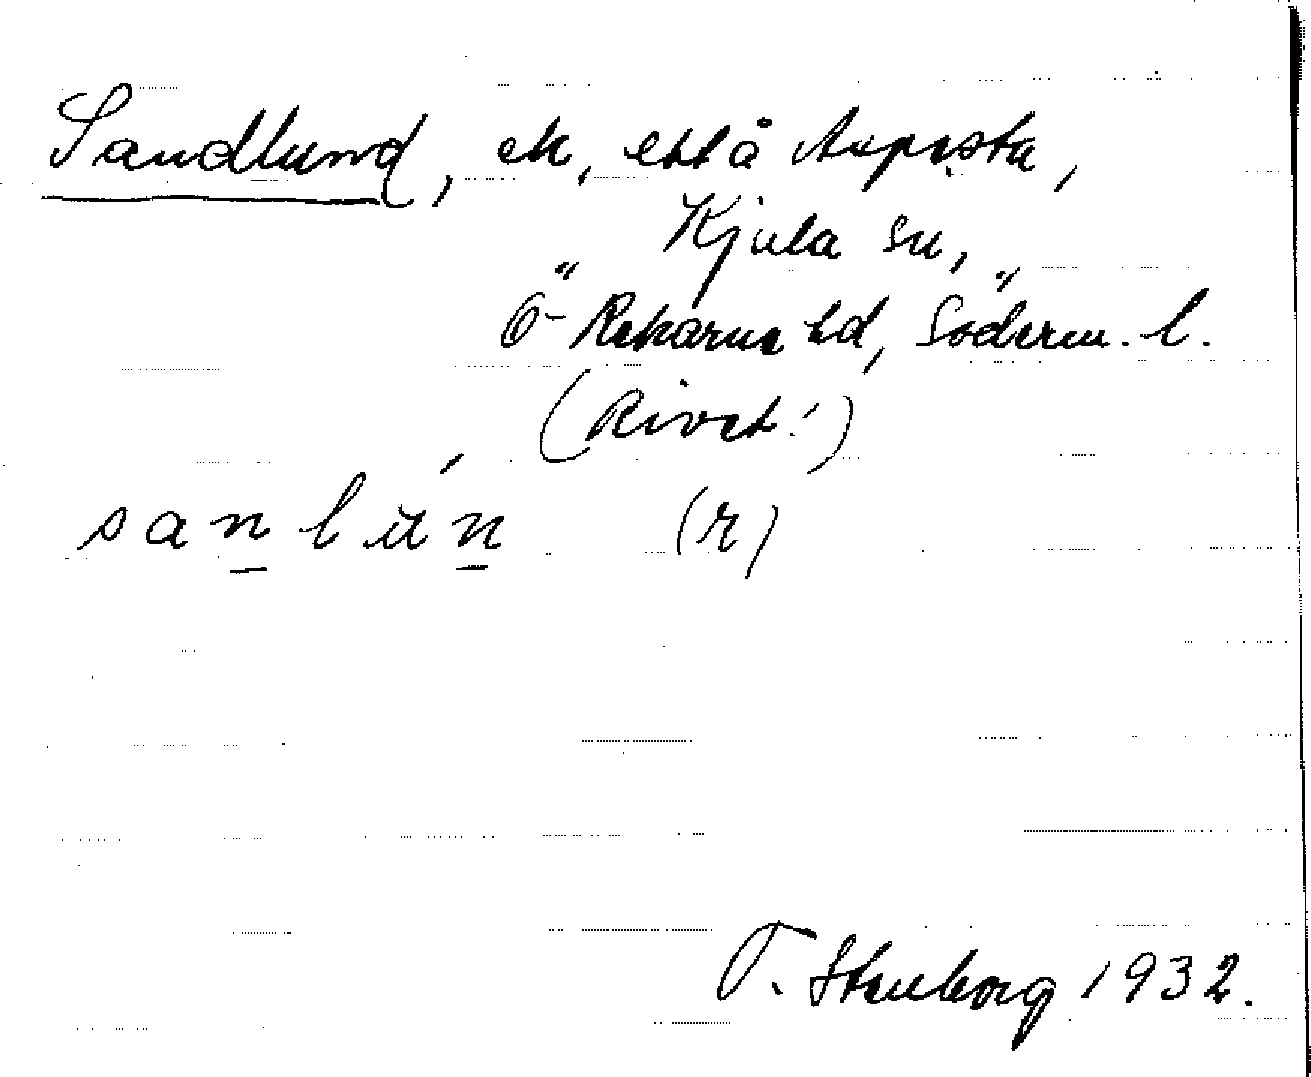 Sandlund, ek, ett å Aspesta,
Kjula sn,
Ö-Rekarne hd, Söderm. l.
(Rivet!)
sanlún (r)
T. Stenborg 1932.